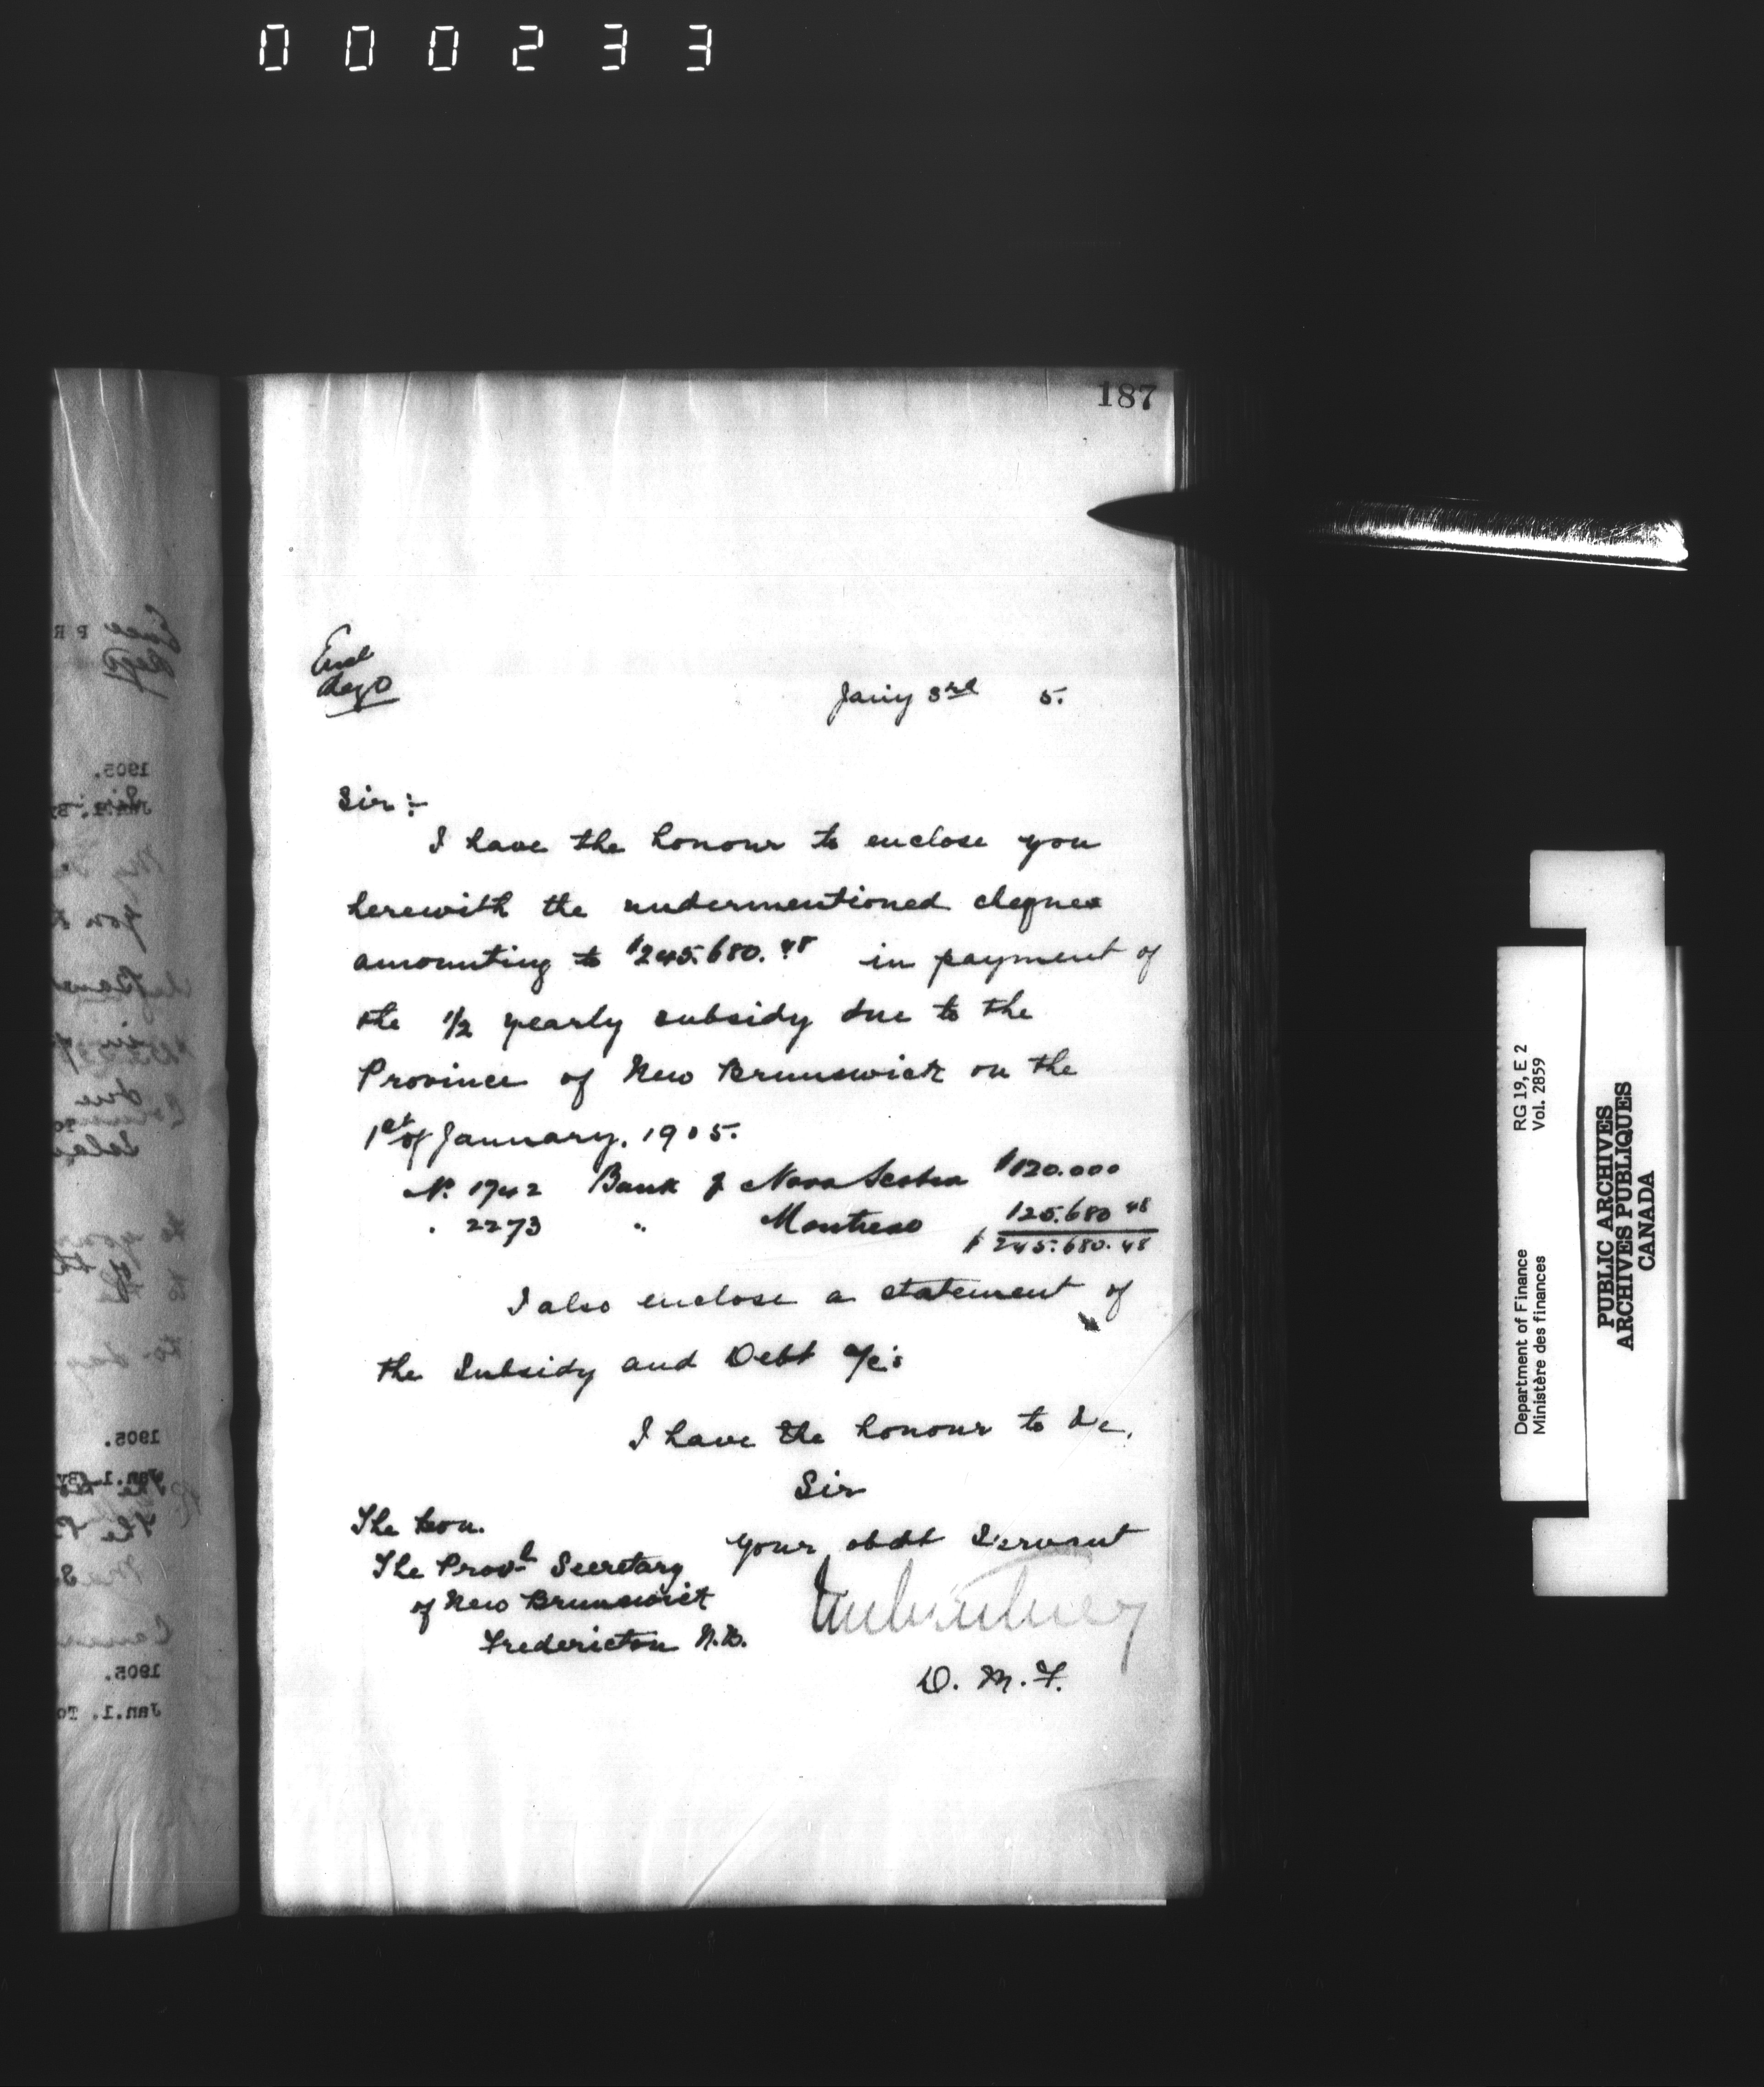 000233
187
Encl
Regd
Jany 3rd 5.
Sir:-
I have the honour to enclose you
herewith the undermentioned cheques
amounting to $245.680.48 in payment of
the 1/2 yearly subsidy due to the
Province of New Brunswick on the
1st of January, 1905.
No. 1742 Bank of Nova Scotia $120.000
" 2273 " Montreal 125.680 48
$245.680.48
I also enclose a statement of
the Subsidy and Debt a/c's
I have the honour to be,
Sir
your obdt Servant
The Hon.
The Provl Secretary
of New Brunswick
Fredericton N.B.
D. M. F.
1905.
1905.
Jan.1.
1905.
Jan.1. To
RG 19, E 2
Vol. 2859
Department of Finance
Ministère des finances
PUBLIC ARCHIVES
ARCHIVES PUBLIQUES
CANADA